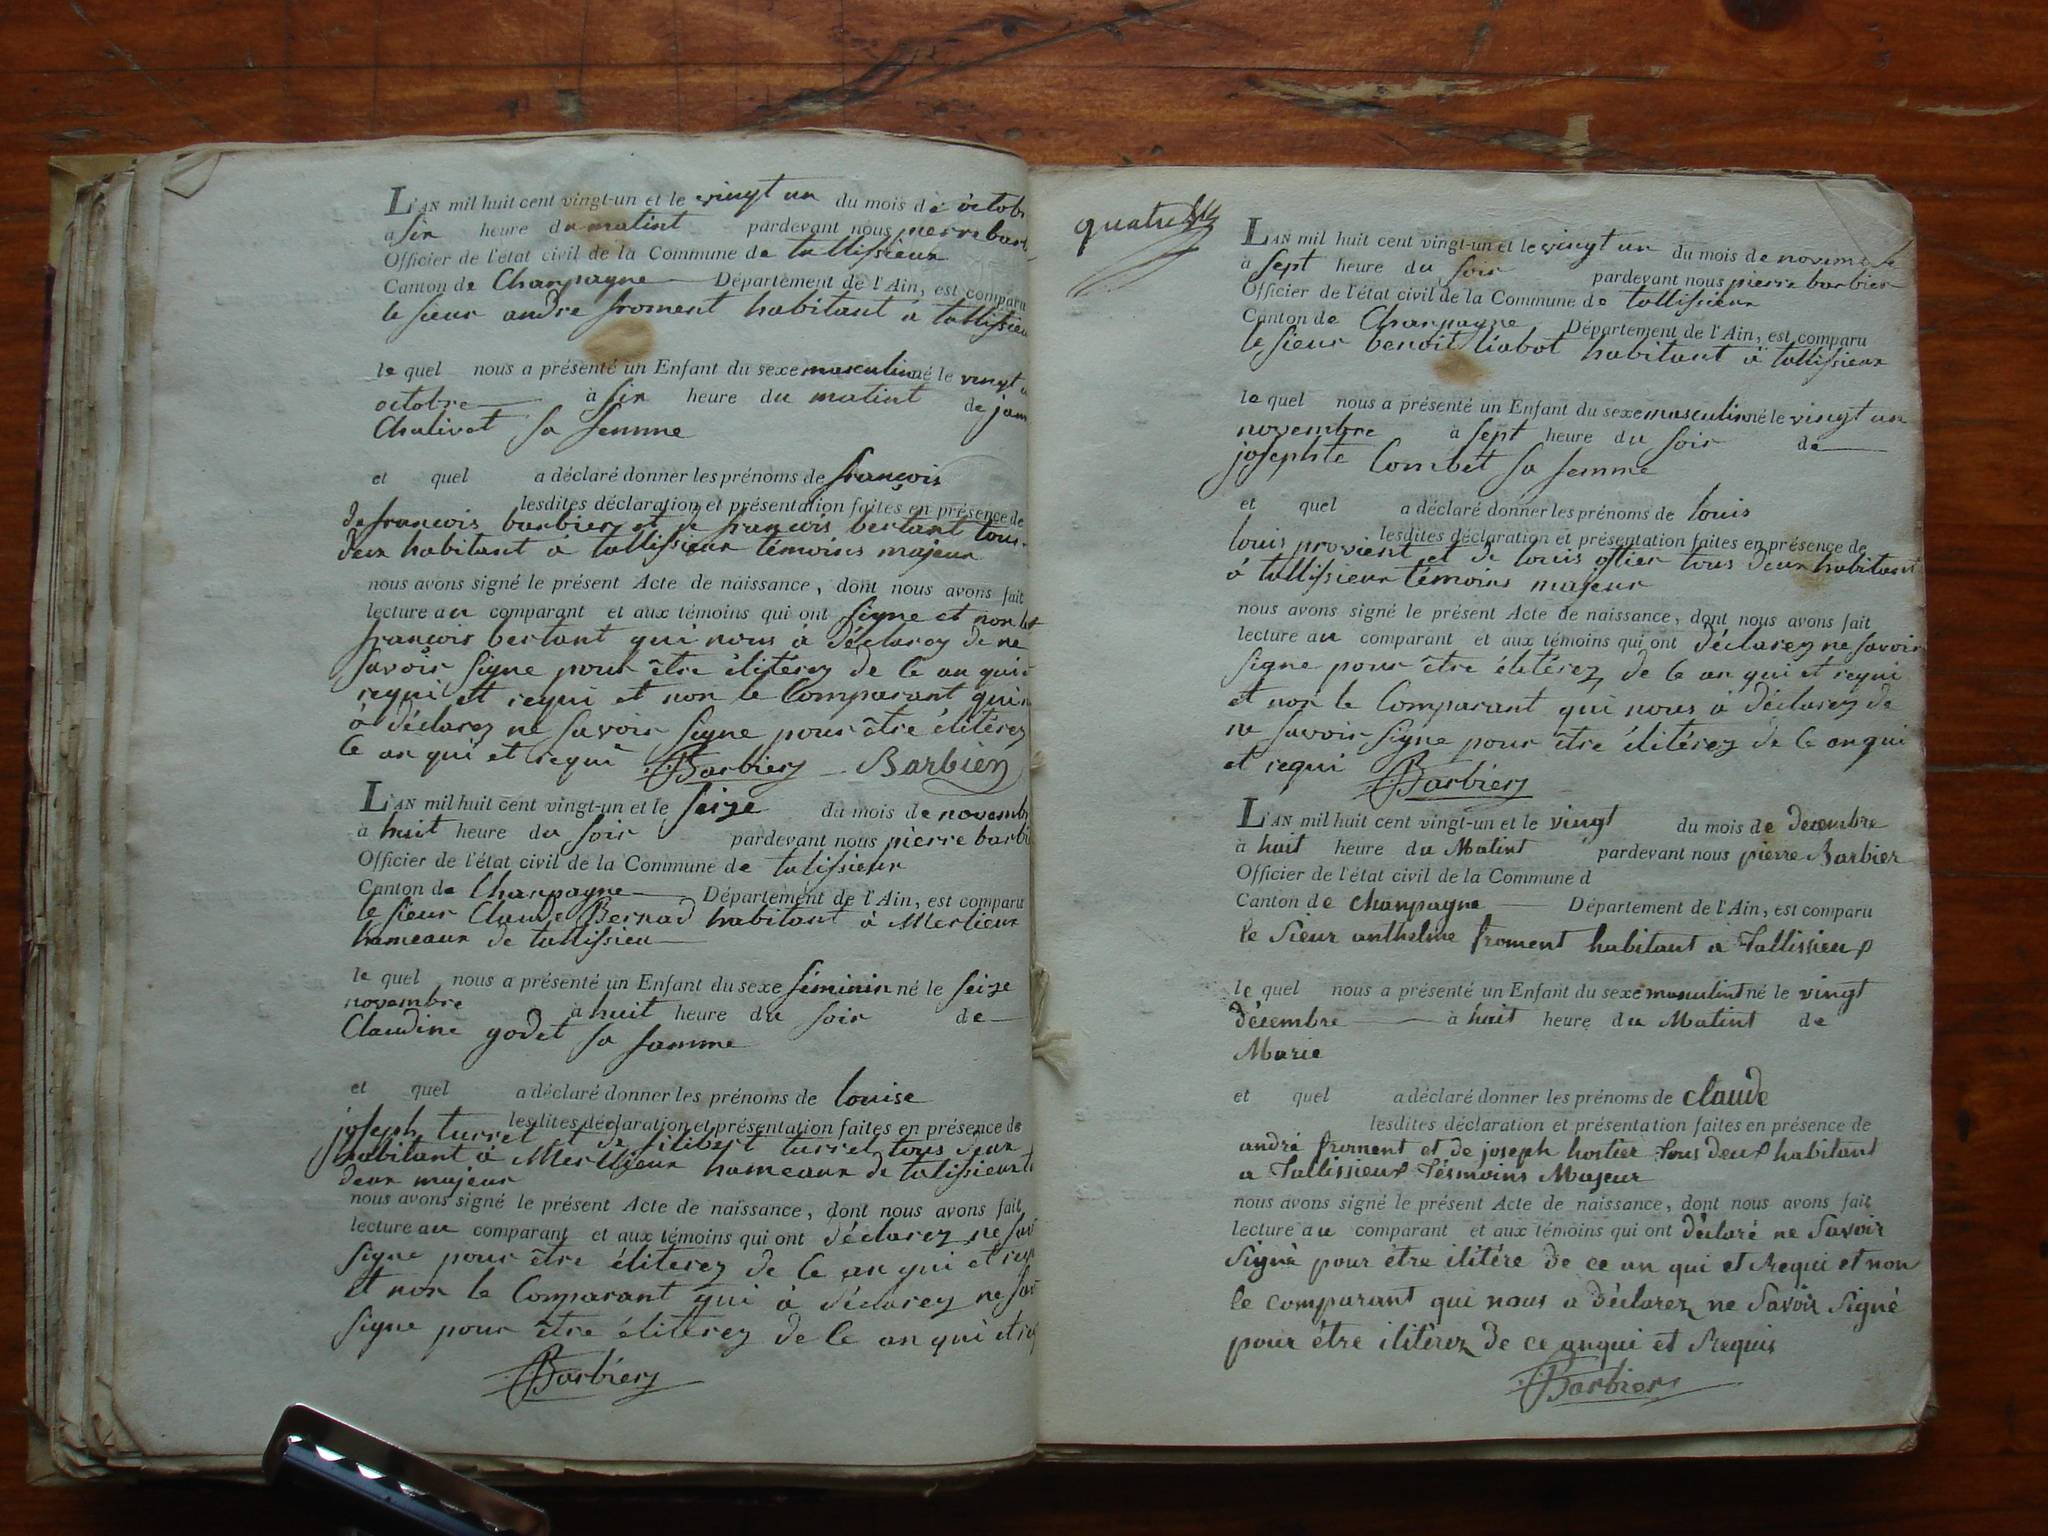 L'AN mil huit cent vingt-un et le vingt un du mois de octob
a six heure du matint pardevant nous pierre barb
Officier de l'état civil de la Commune de tallissieux
Canton de Champagne Département de l'Ain, est comparu
le sieur andre froment habitant à tallissieu
le quel nous a présenté un Enfant du sexe masculin né le vingt
octobre à six heure du matint de jan
Chalivet sa femme
et quel a déclaré donner les prénoms de françois
lesdites déclaration et présentation faites en présence de
de françois barbiery et de françois bertant tous
deux habitant à tallissieux témoins majeur
nous avons signé le présent Acte de naissance, dont nous avons fait
lecture au comparant et aux témoins qui ont signe et non let
françois bertant qui nous à déclarez de ne
savoir signe pour être élitérez de ce an qui
requi ett requi et non le Comparant qui
à déclarez ne savoir signe pour être élitérez
Ce an qui et requi Barbiery Barbiery
L'AN mil huit cent vingt-un et le seize du mois de novemb
à huit heure du soir pardevant nous pierre barbi
Officier de l'état civil de la Commune de talissieux
Canton de Champagne Département de l'Ain, est comparu
le sieur Claude Bernad habitant à Merlieux
hameaux de tallissieu
le quel nous a présenté un Enfant du sexe féminin né le seize
novembre à huit heure du soir de
Claudine godet sa famme
et quel a déclaré donner les prénoms de louise
lesdites déclaration et présentation faites en présence de
joseph turrel et de filibert turrel tous deux
habitant à Merllieux hameaux de talissieux
deux majeur
nous avons signé le présent Acte de naissance, dont nous avons fait
lecture au comparant et aux témoins qui ont déclarez ne sav
signe pour être éliterez de Ce an qui et requ
et non le Comparant qui à déclarez ne sav
signe pour être éliterez de Ce an qui et re
Barbiery
quatre
L'AN mil huit cent vingt-un et le vingt un du mois de novembre
à sept heure du soir pardevant nous pierre barbier
Officier de l'état civil de la Commune de tallissieux
Canton de Champagne Département de l'Ain, est comparu
le sieur benoit liabot habitant à tallissieux
le quel nous a présenté un Enfant du sexe masculin né le vingt un
novembre à sept heure du soir de
josephte Combet sa femme
et quel a déclaré donner les prénoms de louis
lesdites déclaration et présentation faites en présence de
louis provient et de louis ostier tous deux habitant
à tallissieux témoins majeur
nous avons signé le présent Acte de naissance, dont nous avons fait
lecture au comparant et aux témoins qui ont déclarez ne savoir
signe pour être élitérez de Ce an qui et requi
et non le Comparant qui nous à déclarez de
ne savoir signe pour être élitérez de Ce an qui
et requi Barbiery
L'AN mil huit cent vingt-un et le vingt du mois de decembre
à huit heure du Matint pardevant nous pierre Barbier
Officier de l'état civil de la Commune d
Canton de champagne Département de l'Ain, est comparu
le Sieur anthelme froment habitant a Tallissieux
le quel nous a présenté un Enfant du sexe masculint né le vingt
décembre à huit heure du Matint de
Marie
et quel a déclaré donner les prénoms de claude
lesdites déclaration et présentation faites en présence de
andré froment et de joseph hostier tous deux habitant
a Tallissieux Tésmoins Majeur
nous avons signé le présent Acte de naissance, dont nous avons fait
lecture au comparant et aux témoins qui ont déclaré ne Savoir
Signé pour étre ilitére de ce an qui et Requi et non
le comparant qui nous a déclarez ne Savoir Signé
pour étre ilitérez de ce anqui et Requis
Barbiery